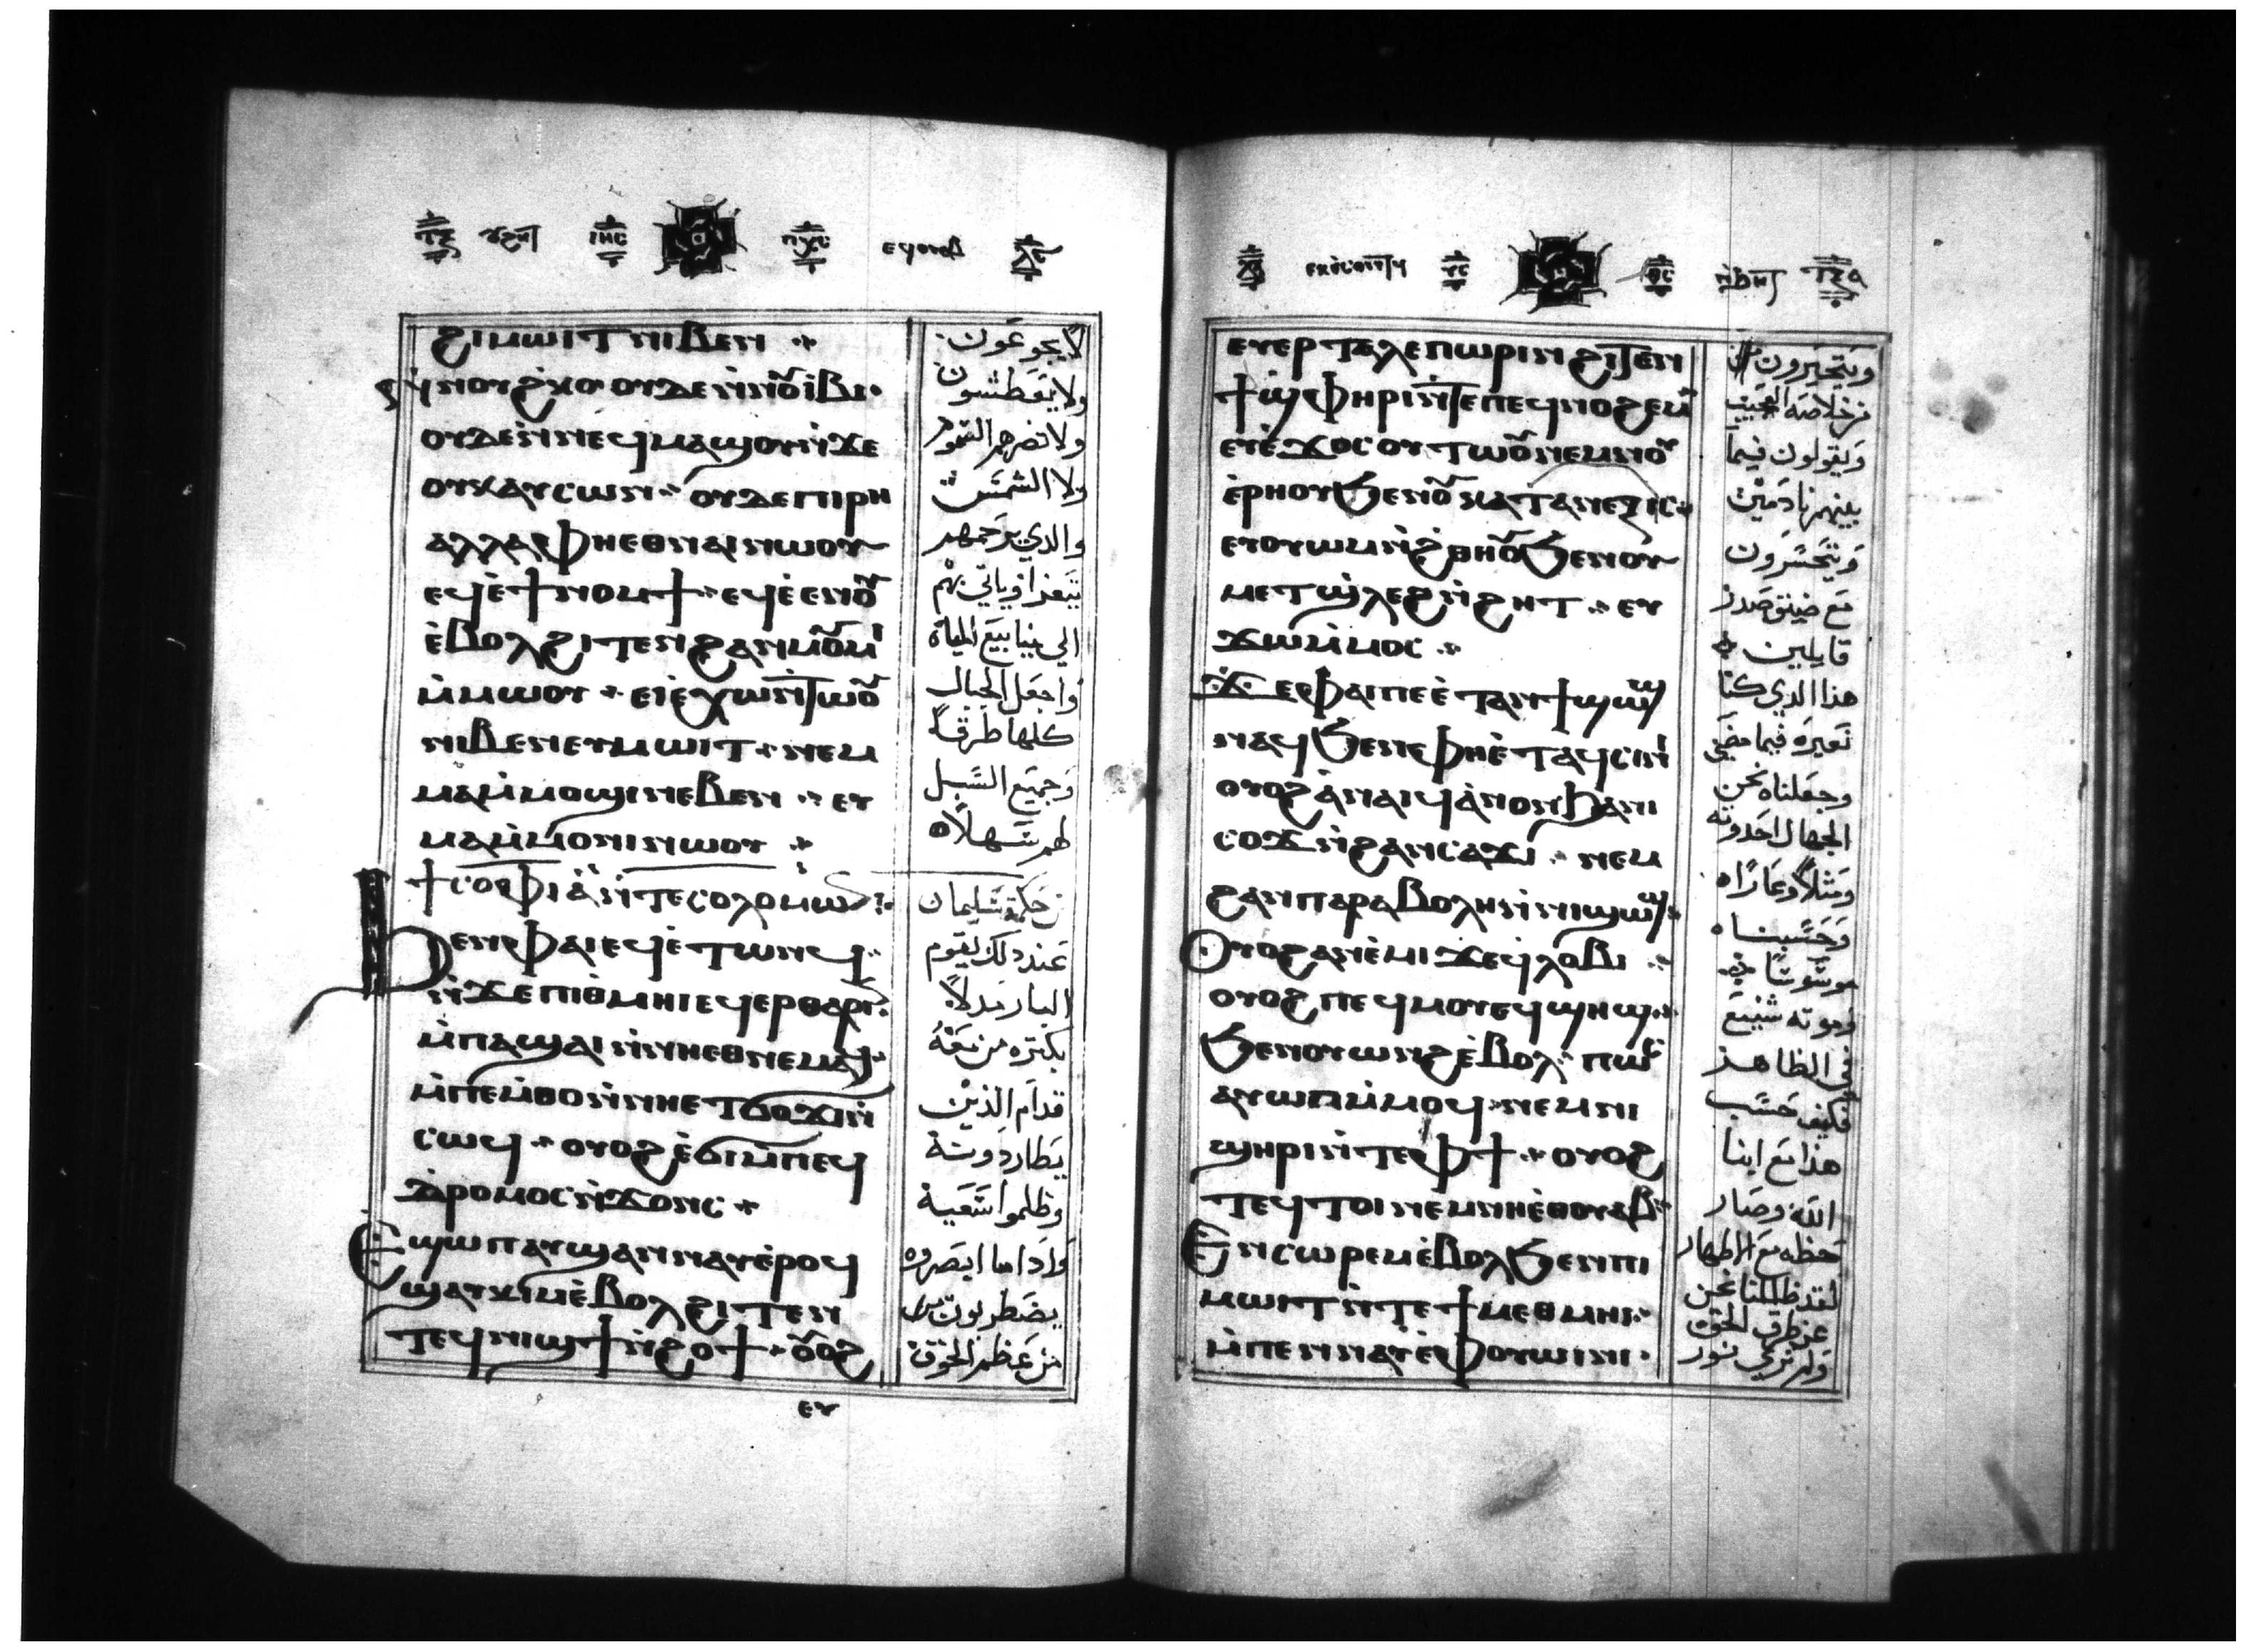 ⲓⲏⲥ ⲡⲭⲥ
ϩⲓⲙⲱⲓⲧ ⲛⲓⲃⲉⲛ
ⲛⲛⲟⲩϩⲕⲟ ⲟⲩⲇⲉ ⲛⲛⲟⲩⲓⲃⲓ
ⲟⲩⲇⲉ ⲛⲛⲉϥⲙⲁϣⲟⲩ ⲛϫⲉ
ⲟⲩⲕⲁⲩⲥⲱⲛ ⲟⲩⲇⲉ ⲡⲓⲣⲏ
ⲁⲗⲗⲁ ⲫⲏⲉⲑⲛⲁⲓ ⲛⲱⲟⲩ
ⲉϥⲉϯⲛⲟⲙϯ ⲉϥⲉⲉⲛⲟⲩ
ⲉⲃⲟⲗϩⲓⲧⲉⲛ ϩⲁⲛⲙⲟⲩⲙⲓ
ⲙⲙⲱⲟⲩ ⲉⲓⲉⲭⲱ ⲛⲧⲱⲟⲩ
ⲛⲓⲃⲉⲛ ⲉⲩⲙⲱⲓⲧ ⲛⲉⲙ
ⲙⲁⲙⲙⲟϣⲓ ⲛⲉⲃⲉⲛ ⲉⲩ
ⲙⲁⲙⲙⲟⲛⲓ ⲛⲱⲟⲩ
ϯⲥⲟⲫⲓⲁ ⲛⲧⲉ ⲥⲟⲗⲟⲙⲱⲛ
ϧⲉⲛ ⲫⲁⲓ ⲉϥⲉⲧⲱⲛϥ
ⲛϫⲉ ⲡⲓⲑⲙⲏⲓ ⲉϥⲉⲣⲑⲁⲣⲓⲛ
ⲙⲡⲁϣⲁⲓ ⲛⲛⲏⲉⲑⲛⲉⲙⲁϥ
ⲙⲡⲉⲙⲑⲟ ⲛⲛⲏⲉⲧϭⲟϫⲓ ⲛ
ⲥⲱϥ ⲟⲩⲟϩ ⲉϭⲓ ⲙⲡⲉϥ
ⲇⲣⲟⲙⲟⲥ ⲛϫⲟⲛⲥ
ⲉϣⲱⲡ ⲁⲩϣⲁⲛⲛⲁⲩ ⲉⲣⲟϥ
ϣⲁⲩⲕⲓⲙ ⲉⲃⲟⲗϩⲓⲧⲉⲛ
ⲧⲉϥⲛⲓϣϯ ⲛϩⲟϯ ⲟⲩⲟϩ
ⲉⲩ
لا يجوعون
ولا يعطشون
ولا تضرهم السموم
ولا الشمس
والذي يرحمهم
الي ينابيع المياة
واجعل الجبال
كلها طرقا
وجميع السبل
لهم سهلاه
من حكمة سليمان
عند ذلك يقوم
البار مدلاً
بكثره من معه
قدام الذين
يطاردونة
وظلموا سعية
واذا ما ابصروه
يضطربون
من عظم الخوف
ⲩⲥ ⲑⲥ
ⲉⲩⲉⲣⲧⲁⲗⲉⲡⲱⲣⲓⲛ ϩⲓⲧⲉⲛ
ϯϣⲫⲏⲣⲓ ⲛⲧⲉ ⲡⲉϥⲛⲟϩⲉⲙ
ⲉⲩⲉϫⲟⲥ ⲟⲩⲧⲱⲟⲩ ⲛⲉⲙ ⲛⲟⲩ
ⲉⲣⲏⲟⲩ ϧⲉⲛ ⲟⲩⲙⲁⲧⲁⲛⲉⲍⲓⲥ
ⲉⲩⲟⲩⲱⲙ ⲛϩⲑⲏⲟⲩ ϧⲉⲛ ⲟⲩ
ⲙⲉⲧϣⲗⲉϩ ⲛϩⲏⲧ ⲉⲩ
ϫⲱ ⲙⲙⲟⲥ
ϫⲉ ⲫⲁⲓ ⲡⲉ ⲉⲧⲁⲛϯϣⲱϣ
ⲛⲁϥ ϧⲉⲛ ⲫⲏⲉⲧⲁϥⲥⲓⲛⲓ
ⲟⲩⲟϩ ⲁⲛⲁⲓϥ ⲁⲛⲟⲛ ϧⲁ ⲛⲓ
ⲥⲟϫ ⲛϩⲁⲛⲥⲁϫⲓ ⲛⲉⲙ
ϩⲁⲛⲡⲁⲣⲁⲃⲟⲗⲏ ⲛⲛⲓϣⲱϣ
ⲟⲩⲟϩ ⲁⲛⲉⲙⲓ ϫⲉ ϥⲗⲟⲃⲓ
ⲟⲩⲟϩ ⲡⲉϥⲙⲟⲩ ⲉϥϣⲏϣ
ϧⲉⲛ ⲟⲩⲱⲛϩ ⲉⲃⲟⲗ ⲡⲱⲥ
ⲁⲩⲱⲡ ⲙⲙⲟϥ ⲛⲉⲙ ⲛⲓ
ϣⲏⲣⲓ ⲛⲧⲉ ⲫϯ ⲟⲩⲟϩ
ⲧⲉϥⲧⲟⲓ ⲛⲉⲙ ⲛⲏⲉⲑⲟⲩⲁⲃ
ⲉⲛⲥⲱⲣⲉⲙ ⲉⲃⲟⲗϧⲉⲛ ⲡⲓ
ⲙⲱⲓⲧ ⲛⲧⲉ ϯⲙⲉⲑⲙⲏⲓ
ⲙⲡⲉⲛⲛⲁⲩ ⲉⲫⲟⲩⲱⲓⲛⲓ
ويتحيرون
من خلاصه العجيب
ويقولون فيما
بينهم نادمين
ويتحسرون
مع ضيق صدر
قايلين
هذا الذي كنا
نعيره فيما مضى
وجعلناه نحن
الجهال احدوثه
ومثلاً وعاراه
وحسبناه
موسوساً
وموته شنيع
في الظاهر
فكيف حسب
هذا مع ابنا
الله وصار
حظه مع الاطهار
لقد ظللنا نحن
عن طرق الحق
ولم نري نور